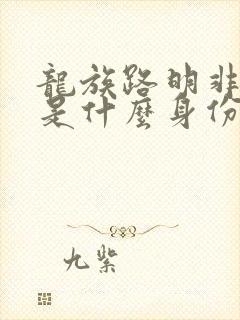 龍族路明非
是什麼身份
九紫